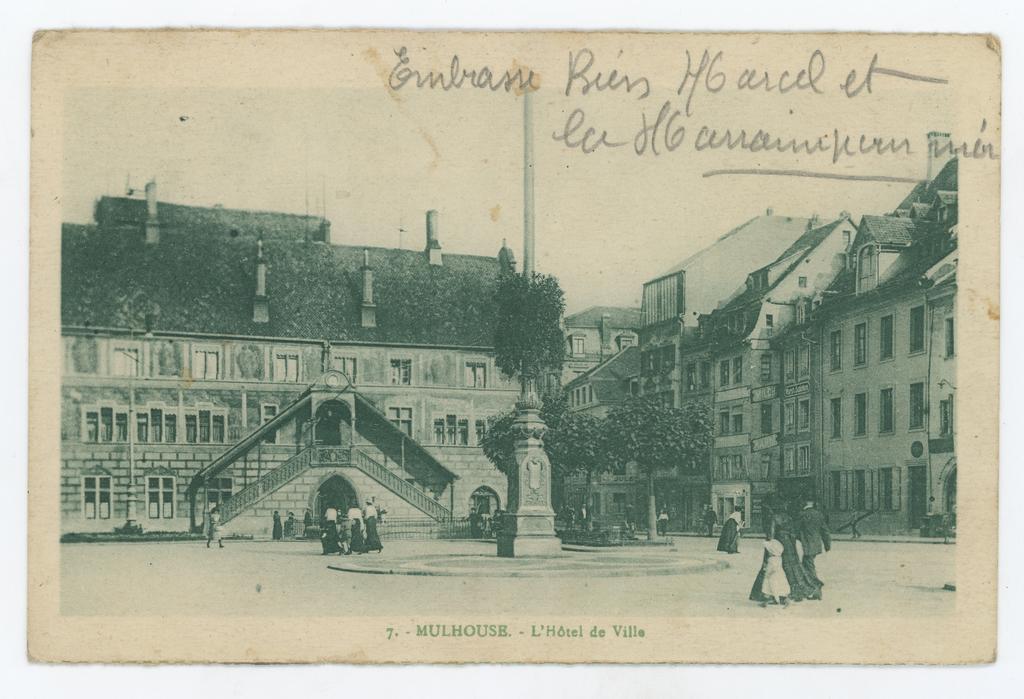 Embrasse Bien Marcel et
la Marraine pour moi
7. - MULHOUSE. - L'Hôtel de Ville